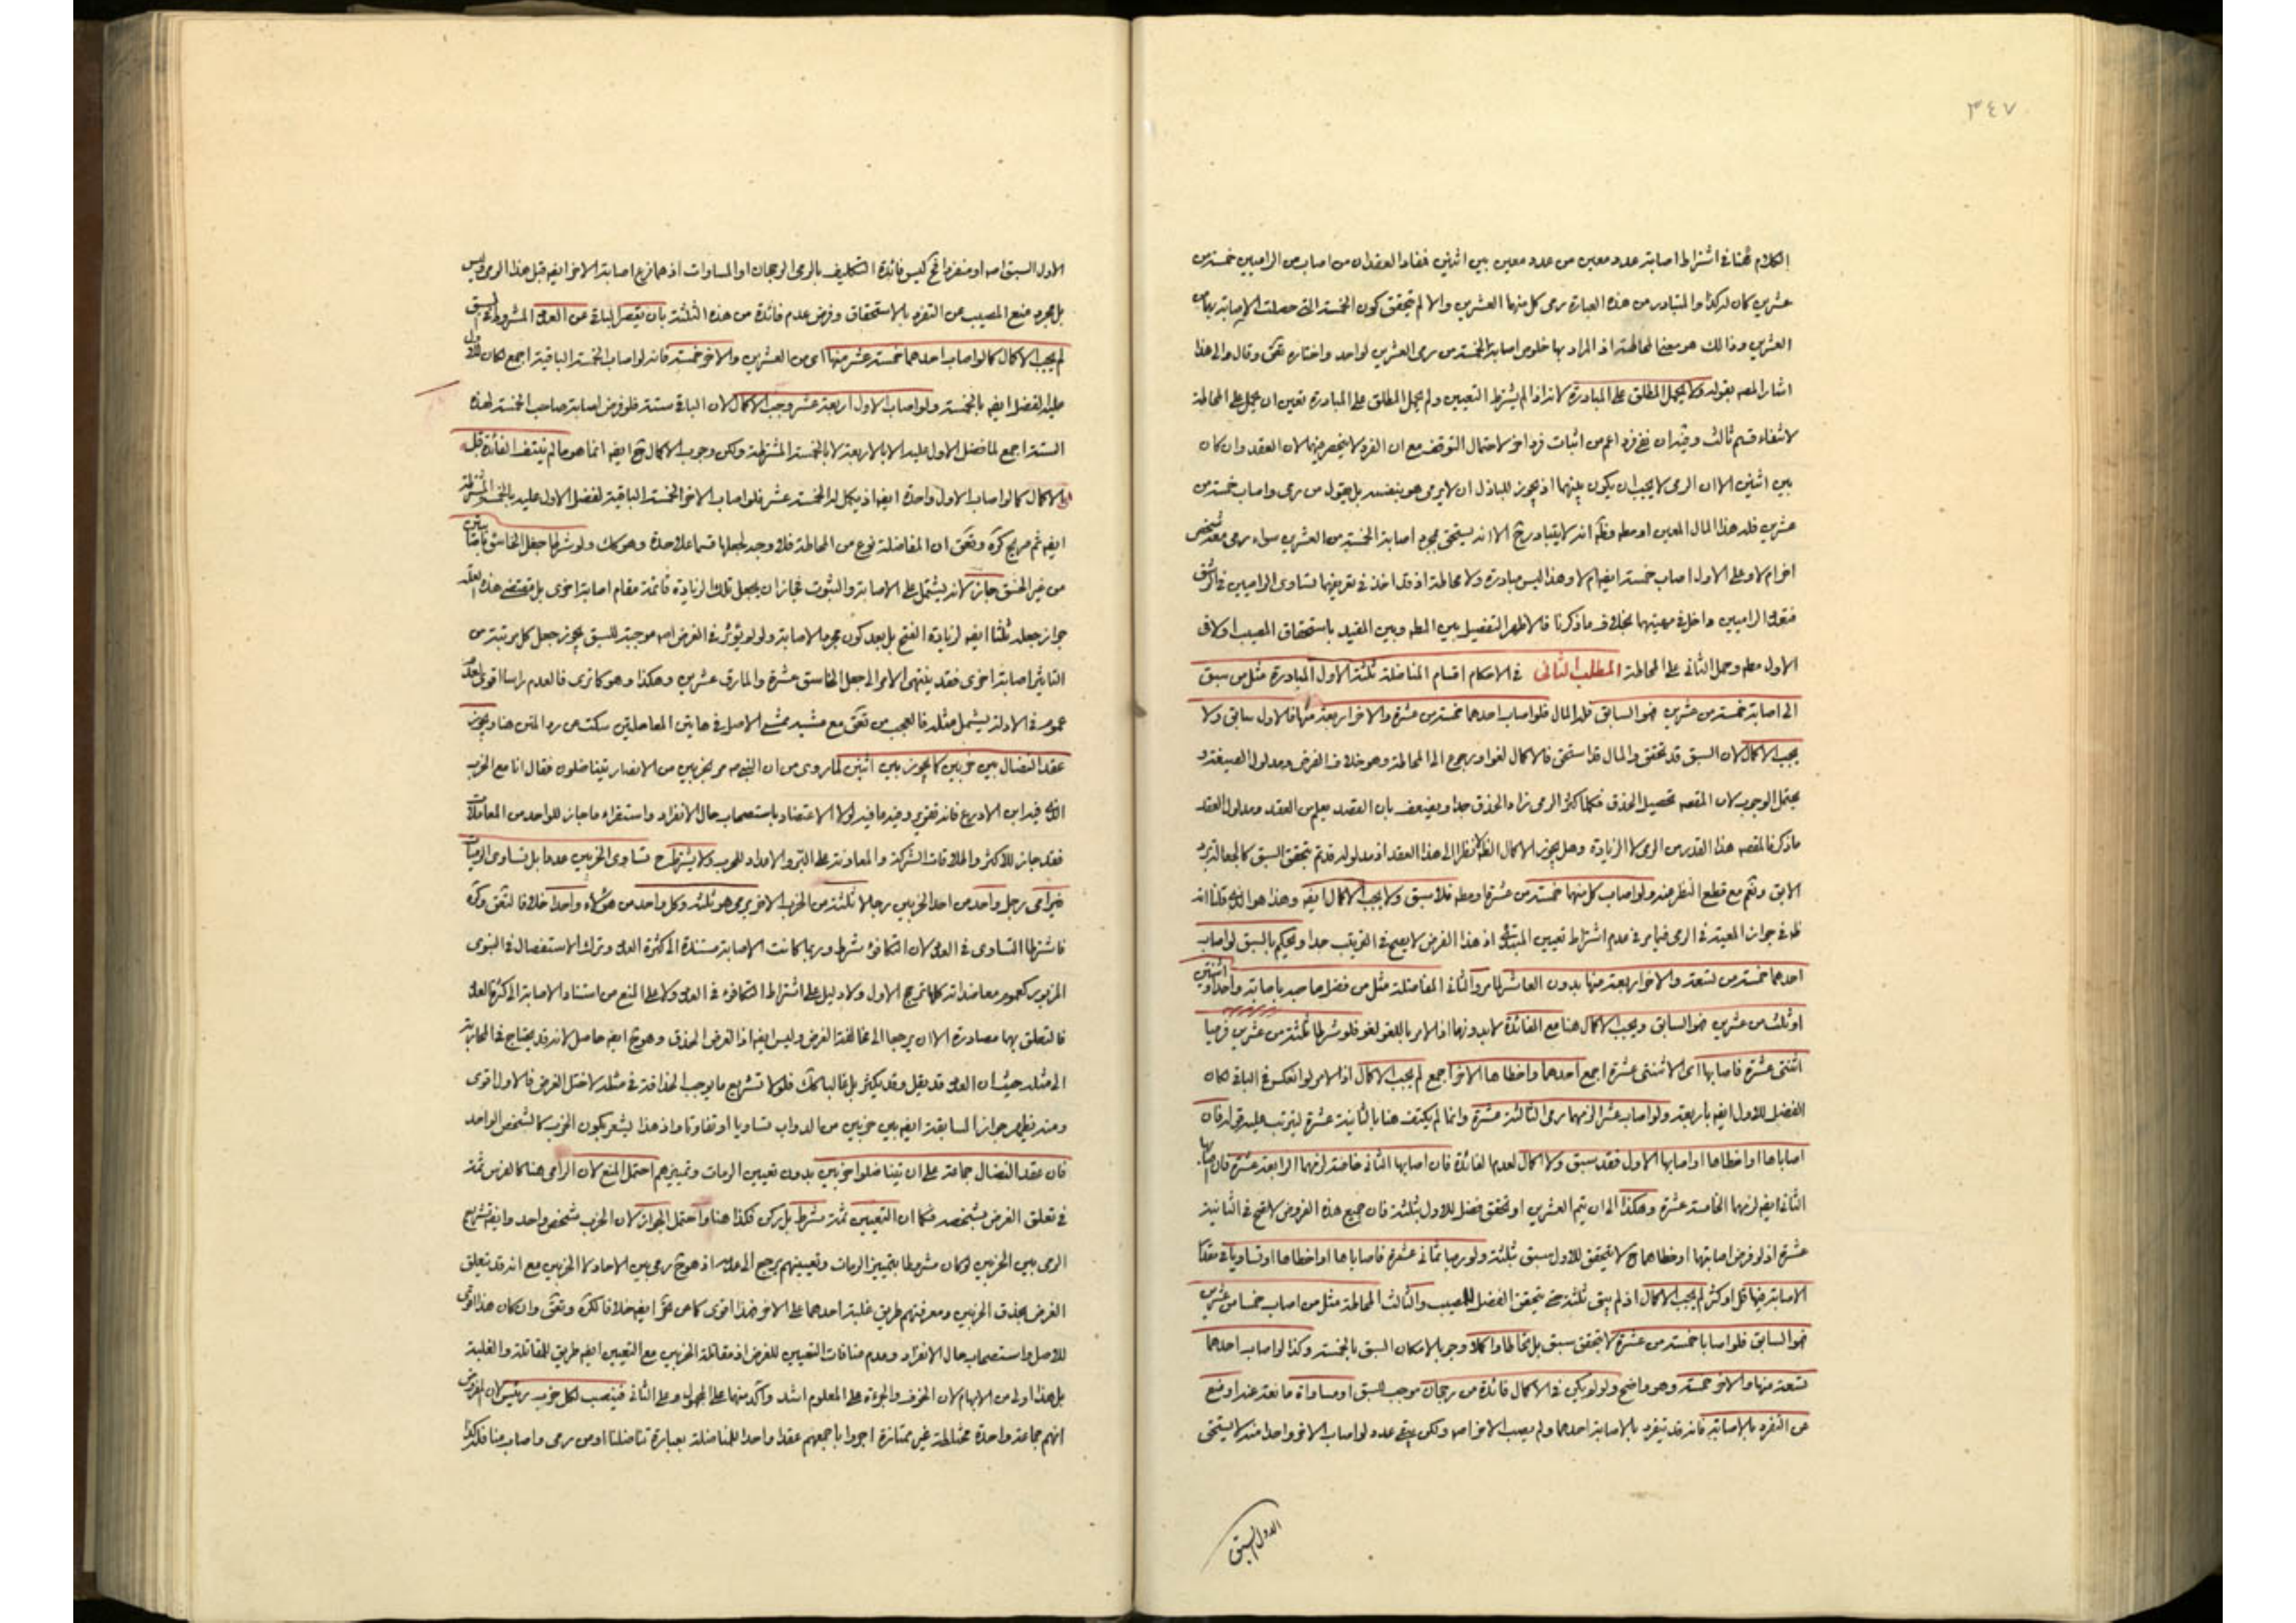 ٣٤٧
الكلام هنا في اشتراط اصابة عدد معين من عدد معين بين اثنين فمفاد العقد ان من اصاب من الراميين خمسة من
عشرين كان له كذا والمتبادر من هذه العبارة رمى كل منهما العشرين والا لم يتحقق كون الخمسة التي حصلت الاصابة بها من
العشرين وذالك هو معنى المحاطة اذ المراد بها خلوص اصابة الخمسة من رمى العشرين لواحد واختاره وقال والى هذا
اشار المصه بقوله ولا يحمل المطلق على المبادرة لانه اذا لم يشترط التعيين ولم يحمل المطلق على المبادرة تعين ان يحمل على المحاطة
لانتفاء قسم ثالث وفيه ان نفي فرد اعم من اثبات فرد اخر لاحتمال التوقف مع ان الفرد لا ينحصر فيهما لان العقد وان كان
بين اثنين الا ان الرمى لا يجب ان يكون بينهما اذ يجوز للباذل ان لا يرمى هو بنفسه بل يقول من رمى واصاب خمسة من
عشرين فله هذا المال المعين او مطه انه لا يتبادر ح الا انه يستحق بمجرد اصابة الخمسة من العشرين سواء رمى معه شخص
اخر ام لا وعلى الاول اصاب خمسة ايضا ام لا وهذا ليس مبادرة ولا محاطة اذ قد اخذ في تعريفهما تساوى الراميين في الرشق
فتعدد الراميين داخل في مهيتهما بخلاف ما ذكرنا فالاظهر التفصيل بين المطه وبين المقيد باستحقاق المصيب اولا في
الاول مطه وحمل الثاني على المحاطة المطلب الثاني في الاحكام اقسام المناضلة ثلثة الاول المبادرة مثل من سبق
الى اصابة خمسة من عشرين فهو السابق فله المال فلو اصاب احدهما خمسة من عشرة والاخر اربعة منها فالاول سابق ولا
يجب الاكمال لان السبق قد تحقق والمال قد استحق فالاكمال لغو او يرجع الى المحاطة وهو خلاف الفرض ومدلول الصيغة و
يحتمل الوجوب لان المقصه تحصيل الحذق فكلما كثر الرمى زاد الحذق جدا ويضعف بان القصد يعلم من العقد ومدلول العقد
ماذكر فالمقصه هذا القدر من الرمى لا الزيادة وهل يجوز الاكمال الظه لا نظرا الى هذا العقد اذ مدلوله قد تم بتحقق السبق كالجعالة برد
الابق ونعم مع قطع النظر عنه ولو اصاب كل منهما خمسة من عشرة او مطه فلا سبق ولا يجب الاكمال ايضه وهذا هو الذي قلنا انه
ظه في جواز المعية في الرمى فيما مر في عدم اشتراط تعيين المبتدى اذ هذا الفرض لا يصح في الترتيب جدا ويحكم بالسبق لو اصاب
احدهما خمسة من تسعة والاخر اربعة منها بدون العاشر لما مر والثاني المفاضلة مثل من فضل صاحبه باصابة واحد او اثنتين
او ثلث من عشرين فهو السابق ويجب الاكمال هنا مع الفائدة لا بدونها اذ الامر باللغو لغو فلو شرطا ثلثة من عشرين فرميا
اثنتى عشرة فاصابها اى الاثنتى عشرة اجمع احدهما واخطاها الاخر اجمع لم يجب الاكمال اذ الامر لو انعكس في الباقي لكان
الفضل للاول ايضه باربعة ولو اصاب عشرا لزمهما رمى الثالثة عشرة وانما لم يكتف هنا بالثانية عشرة ليترتب عليه قوله فان
اصاباها او اخطاها او اصابها الاول فقد سبق ولا اكمال لعدم الفائدة فان اصابها الثاني خاصة لزمهما الرابعة عشرة فان اصابها
الثاني ايضه لزمهما الخامسة عشرة وهكذا الى ان يتم العشرين او يتحقق فضل للاول بثلثة فان جميع هذه الفروض لا تصح في الثانية
عشرة اذ لو فرض اصابتهما او خطاهما ح لا يتحقق للاول سبق بثلثة ولو رميا ثماني عشرة فاصاباها او اخطاها او تساويا في
الاصابة فيها قل او كثر لم يجب الاكمال اذ لم يبق ثلثة حتى يتحقق الفضل للمصيب والثالث المحاطة مثل من اصاب خمسا من عشرين
فهو السابق فلو اصابا خمسة من عشرة لا يتحقق سبق بل تحاطا واكملا وجوبا لامكان السبق بالخمسة وكذا لو اصاب احدهما
تسعة منها والاخر خمسة وهو واضح ولو لم يكن في الاكمال فائدة من رجحان موجب للسبق او مساواة مانعة عنه او منع
عن التفرد بالاصابة فانه قد يتفرد بالاصابة احدهما ولم يصب الاخر اصه ولكن بقي عدد لو اصاب الاخر واحدا منه لا يستحق
الاول السبق
الاول السبق اصه او منفردا ح ليس فائدة التكليف بالرمى الرجحان او المساوات اذ هما فرع اصابة الاخر ايضه قبل هذا الرمى وليس
بل مجرد منع المصيب عن التفرد بالاستحقاق وفرض عدم فائدة من هذه الثلثة بان يقصر الباقي عن العدد المشروط به السبق
لم يجب الاكمال كما لو اصاب احدهما خمسة عشر منها اى من العشرين والاخر خمسة فانه لو اصاب الخمسة الباقية اجمع لكان للاول
عليه الفضل ايضه بالخمسة ولو اصاب الاول اربعة عشر وجب الاكمال لان الباقي ستة فلو فرض اصابة صاحب الخمسة لهذه
الستة اجمع لما فضل الاول عليه الا بالاربعة لا بالخمسة المشترطة ولكن وجوب الاكمال ح ايضه انما هو ما لم ينتف الفائدة قبل
الاكمال كما لو اصاب الاول واحدة ايضه اذ يكمل له الخمسة عشر فلو اصاب الاخر الخمسة الباقية لفضل الاول عليه بالخمسة المشترطة
ايضه ثم صريح كره ان المفاضلة نوع من المحاطة فلا وجه لجعلها قسما علاحدة وهو كك ولو شرطا جعل الخاسق باصابتين
من غير الخسق جاز لانه يشتمل على الاصابة والثبوت فجاز ان يجعل تلك الزيادة قائمة مقام اصابة اخرى بل مقتضى هذه العلة
جواز جعله ثلثا ايضه لزيادة الفتح بل بعد كون مجرد الاصابة ولو لم يؤثر في الغرض اصه موجبة للسبق يجوز جعل كل مرتبة من
التاثير اصابة اخرى فقد ينتهى الامر الى جعل الخاسق عشرة والمارق عشرين وهكذا وهو كما ترى فالعدم راسا اقوى لعدم
عموم في الادلة يشمل مثله فالعجب من مع تشييده الاصل في هاتين المعاملتين سكت عن رد المتن هنا ويجوز
عقد النضال بين حزبين كما يجوز بين اثنين لما روى من ان النبي صه مر بحزبين من الانصار يتناضلون فقال انا مع الحزب
الذي فيه ابن الادرع فانه تقرير وفيه ما فيه لولا الاعتضاد باستصحاب حال الانفراد واستقراء ما جاز للواحد من المعاملات
فقد جاز للاكثر واطلاقات الشركة والمعاونة على البر والامداد للحرب ولا يشترط ح تساوى الحزبين عددا بل تساوى الرميات
فيرامى رجل واحد من احد الحزبين رجلا ثلثة من الحزب الاخر يرمى هو ثلثة وكل واحد من هؤلاء واحدا خلافا
فاشترطا التساوى في العدد لان التكافؤ شرط وربما كانت الاصابة مستندة الى كثرة العدد وترك الاستفصال في النبوى
المزبور كعموم معاضداته كلها ترجح الاول ولا دليل على اشتراط التكافؤ في العدد ولا على المنع من استناد الاصابة الى كثرة العدد
فالتعلق بهما مصادرة الا ان يرجعا الى مخالفة الغرض وليس ايضه اذ الغرض الحذق وهو ح ايضه حاصل لانه قد يحتاج في المحاربة
الى مثله حيث ان العدد قد يقل وقد يكثر بل غالبا كك فلولا تشريع ما يوجب الحذاقة في مثله لاختل الغرض فالاول اقوى
ومنه يظهر جواز المسابقة ايضه بين حزبين من الدواب تساويا او تفاوتا واذ هذا يشعر بكون الحزب كالشخص الواحد
فان عقد النضال جماعة على ان يتناضلوا حزبين بدون تعيين الرمات وتمييزهم احتمل المنع لان الرامى هنا كالفرس ثمة
في تعلق الغرض بشخصه فكما ان التعيين ثمة شرط بل ركن فكذا هنا واحتمل الجواز لان الحزب كشخص واحد وايضه تشريع
الرمى بين الحزبين لو كان مشروطا بتمييز الرمات وتعيينهم يرجع الى عدمه اذ هو ح رمى بين الاحاد لا الحزبين مع انه قد يتعلق
الغرض بحذق الحزبين ومعرفتهم طريق غلبة احدهما على الاخر فهذا اقوى كما عن ايضه خلافا لكره وان كان هذا اقوى
للاصل واستصحاب حال الانفراد وعدم منافات التعيين للغرض اذ مقاتلة الحزبين مع التعيين ايضه طريق للمقاتلة والغلبة
بل هذا اولى من الابهام لان الخوف والجرءة على المعلوم اشد وآكد منهما على المجهول وعلى الثاني فينصب لكل حزب رئيس لان المفروض
انهم جماعة واحدة مختلطة غير ممتازة اجروا باجمعهم عقدا واحدا للمناضلة بعبارة تناضلنا او من رمى واصاب منا فله كذا